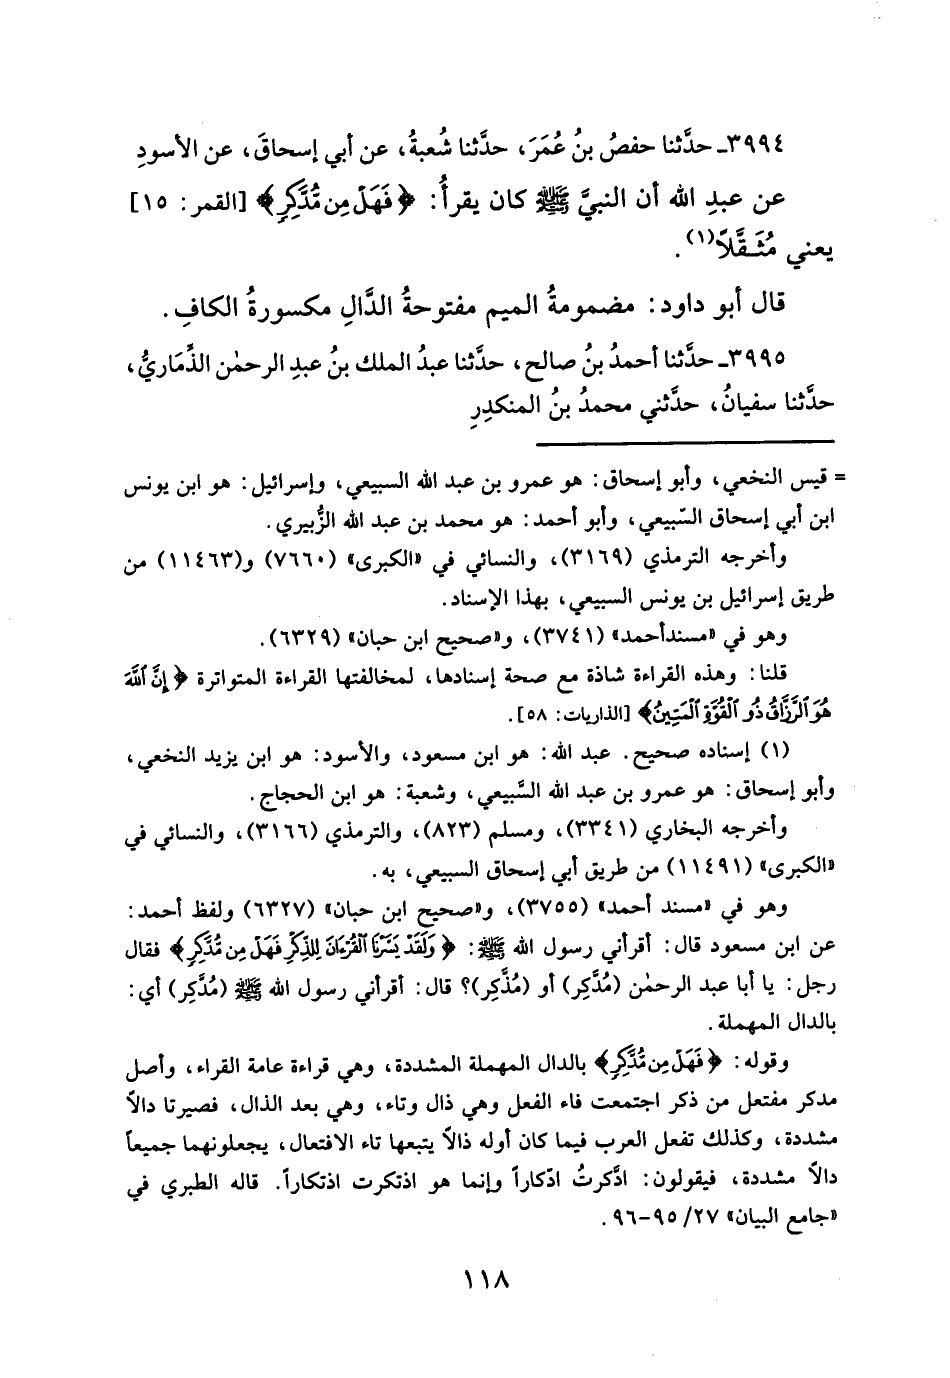 ٣٩٩٤ـ حدَّثنا حفصُ بنُ عُمَرَ، حدَّثنا شُعبةُ، عن أبي إسحاقَ، عن الأسودِ
عن عبدِ الله أن النبيَّ ﷺ كان يقرأُ: ﴿فَهَلْ مِن مُّدَّكِرٍ﴾ [القمر: ١٥]
يعني مُثَقَّلاً(١).
قال أبو داود: مضمومةُ الميم مفتوحةُ الدَّالِ مكسورةُ الكافِ.
٣٩٩٥ـ حدَّثنا أحمدُ بنُ صالح، حدَّثنا عبدُ الملك بنُ عبدِ الرحمٰن الذِّمَاريُّ،
حدَّثنا سفيانُ، حدَّثني محمدُ بنُ المنكدِرِ
= قيس النخعي، وأبو إسحاق: هو عمرو بن عبد الله السبيعي، وإسرائيل: هو ابن يونس
ابن أبي إسحاق السَّبيعي، وأبو أحمد: هو محمد بن عبد الله الزُّبيري.
وأخرجه الترمذي (٣١٦٩)، والنسائي في «الكبرى» (٧٦٦٠) و(١١٤٦٣) من
طريق إسرائيل بن يونس السبيعي، بهذا الإسناد.
وهو في «مسندأحمد» (٣٧٤١)، و«صحيح ابن حبان» (٦٣٢٩).
قلنا: وهذه القراءة شاذة مع صحة إسنادها، لمخالفتها القراءة المتواترة ﴿إِنَّ ٱللَّهَ
هُوَ ٱلرَّزَّاقُ ذُو ٱلْقُوَّةِ ٱلْمَتِينُ﴾ [الذاريات: ٥٨].
(١) إسناده صحيح. عبد الله: هو ابن مسعود، والأسود: هو ابن يزيد النخعي،
وأبو إسحاق: هو عمرو بن عبد الله السَّبيعي، وشعبة: هو ابن الحجاج.
وأخرجه البخاري (٣٣٤١)، ومسلم (٨٢٣)، والترمذي (٣١٦٦)، والنسائي في
«الكبرى» (١١٤٩١) من طريق أبي إسحاق السبيعي، به.
وهو في «مسند أحمد» (٣٧٥٥)، و«صحيح ابن حبان» (٦٣٢٧) ولفظ أحمد:
عن ابن مسعود قال: أقرأني رسول الله ﷺ: ﴿وَلَقَدْ يَسَّرْنَا ٱلْقُرْءَانَ لِلذِّكْرِ فَهَلْ مِن مُّدَّكِرٍ﴾ فقال
رجل: يا أبا عبد الرحمٰن (مُدَّكِر) أو (مُذَّكِر)؟ قال: أقرأني رسول الله ﷺ (مُدَّكِر) أي:
بالدال المهملة.
وقوله: ﴿فَهَلْ مِن مُّدَّكِرٍ﴾ بالدال المهملة المشددة، وهي قراءة عامة القراء، وأصل
مدكر مفتعل من ذكر اجتمعت فاء الفعل وهي ذال وتاء، وهي بعد الذال، فصيرتا دالاً
مشددة، وكذلك تفعل العرب فيما كان أوله ذالاً يتبعها تاء الافتعال، يجعلونهما جميعاً
دالاً مشددة، فيقولون: ادَّكرتُ ادّكاراً وإنما هو اذتكرت اذتكاراً. قاله الطبري في
«جامع البيان» ٢٧/ ٩٥-٩٦.
١١٨